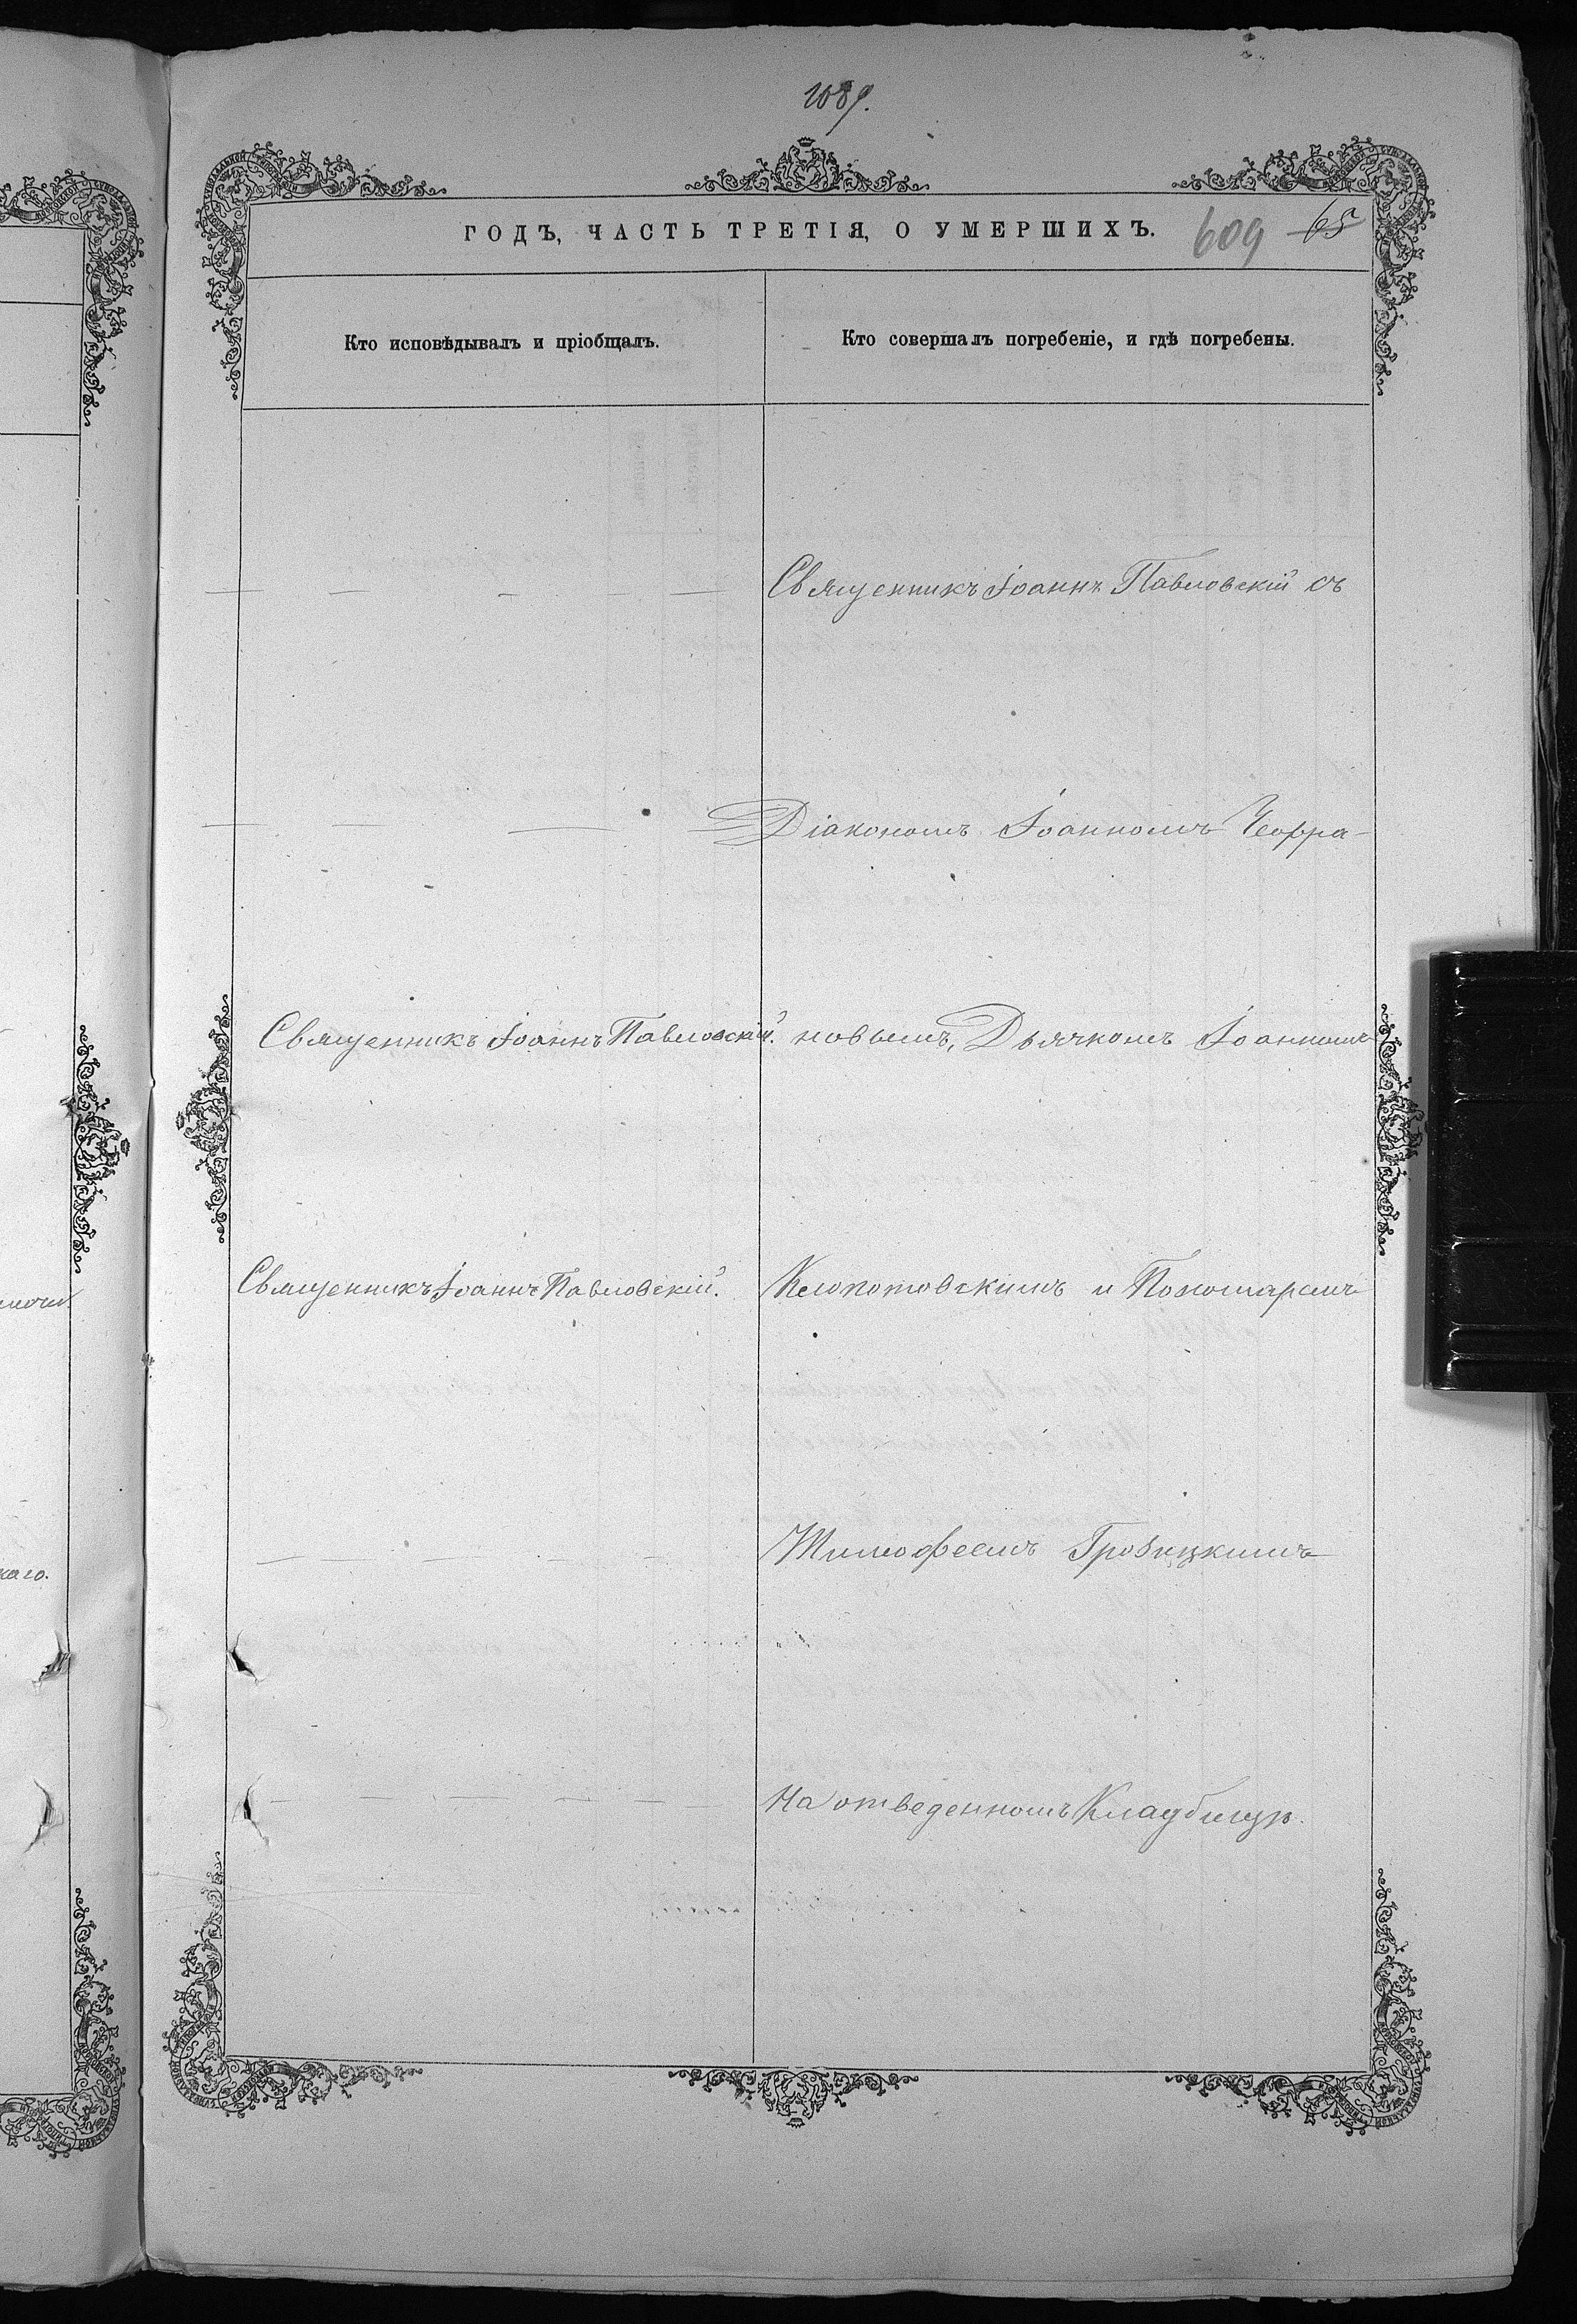 1089.
ГОДЪ, ЧАСТЬ ТРЕТІЯ, О УМЕРШИХЪ.
609 65
Кто исповѣдывалъ и пріобщалъ.
Кто совершалъ погребеніе, и гдѣ погребены.
Священникъ Іоаннъ Павловскій съ
Діакономъ Іоанномъ
Священникъ Іоаннъ Павловскій.
новымъ, Дьячкомъ Іоанномъ
Священникъ Іоаннъ Павловскій.
Клопотовскимъ и Пономаремъ
Тимофеемъ
На отведенномъ Кладбищѣ.
каго.